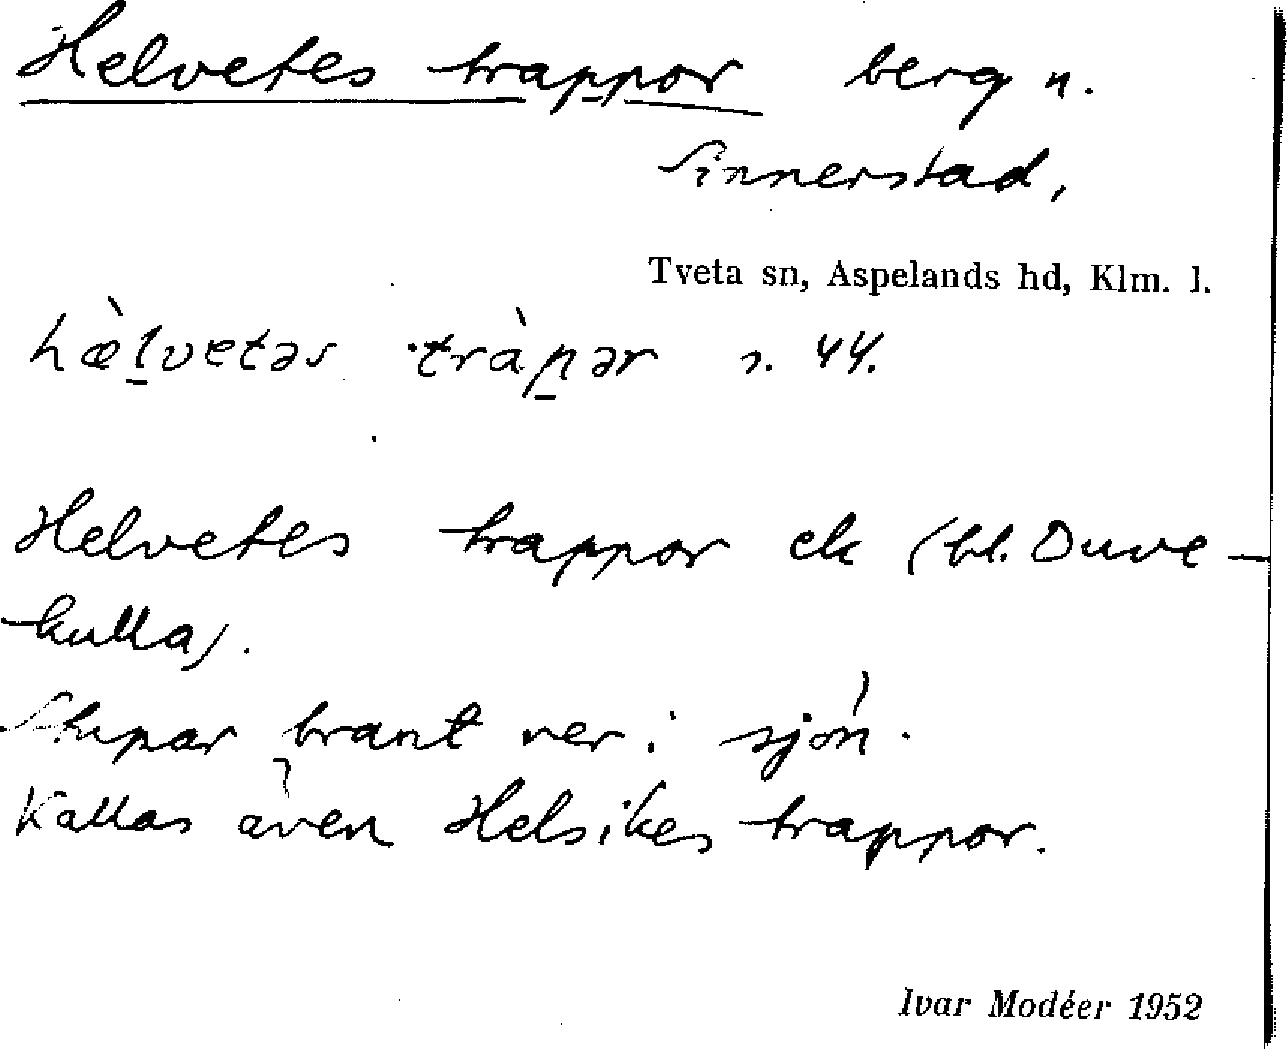 Helvetes trappor berg n.
Sinnerstad,
Tveta sn, Aspelands hd, Klm. l.
hæ̀l̠vetəs ·tràp̠ər s. 44.
Helvetes trappor ek (bl. Duve-
kulla).
Stupar brant ner i sjön.
Kallas även Helsikes trappor.
Ivar Modéer 1952